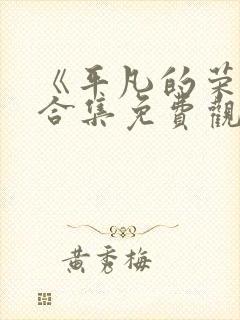 《平凡的荣
合集免費觀
黄秀梅